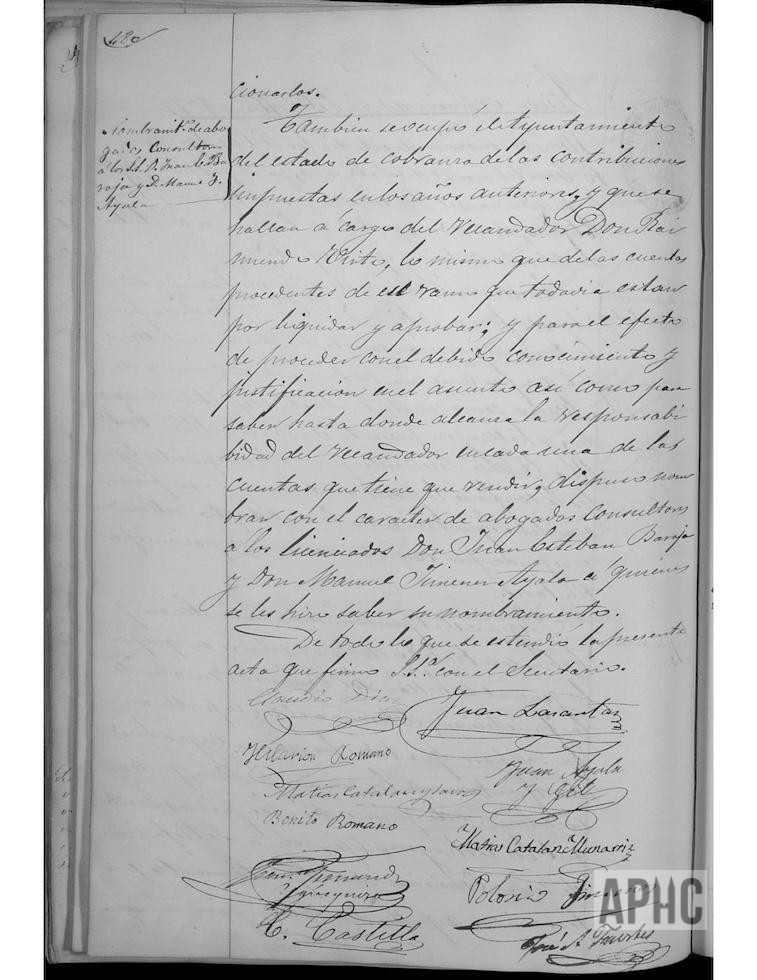 480
Nombramto. de abo
gados Consultores
a los S.S. D. Juan E. Ba
raja y D. Manuel J.
Ayala
cionarlos.
Tambien se ocupó el Ayuntamiento
del estado de cobranza de las contribuciones
impuestas en los años anteriores, y que se
hallan á cargo del Recaudador Don Rai
mundo Pinto, lo mismo que de las cuentas
procedentes de este ramo que todavia estan
por liquidar y aprobar; y para el efecto
de proceder con el debido conocimiento y
justificación en el asunto así como para
saber hasta donde alcanza la responsabi
lidad del Recaudador en cada una de las
cuentas que tiene que rendir, dispuso nom
brar con el caracter de abogados Consultores
a los licenciados Don Juan Esteban Baraja
y Don Manuel Jimenez Ayala á quienes
se les hizo saber su nombramiento.
De todo lo que se estendió la presente
acta que firmo S.Sª con el Secretario.
Claudio Diaz
Juan Lacanta
Hilarion Romano
Juan Ayala
y Gil
Matias Catalan y
Benito Romano
Matias Catalan Munarriz
Polonio Jimenez
C. Castilla
José A. Fuertes
APHC